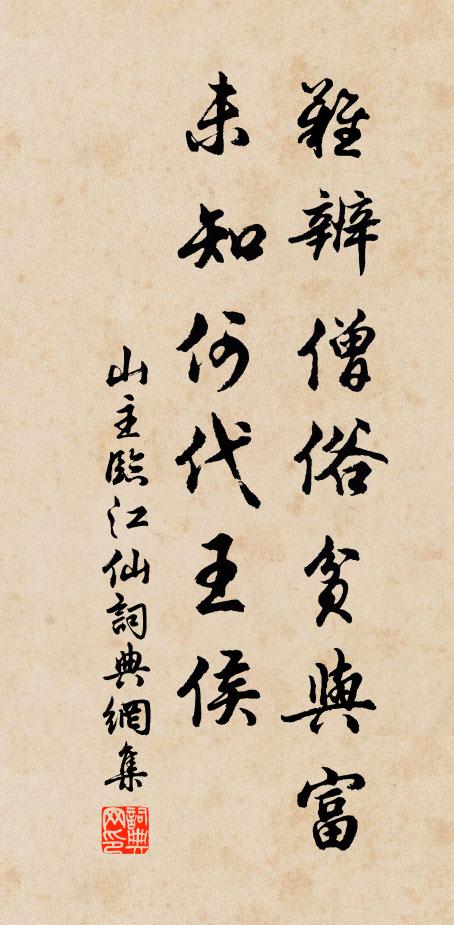 難辨僧俗貧與富
未知何代王侯
山主臨江仙詞典網集
詞典网印